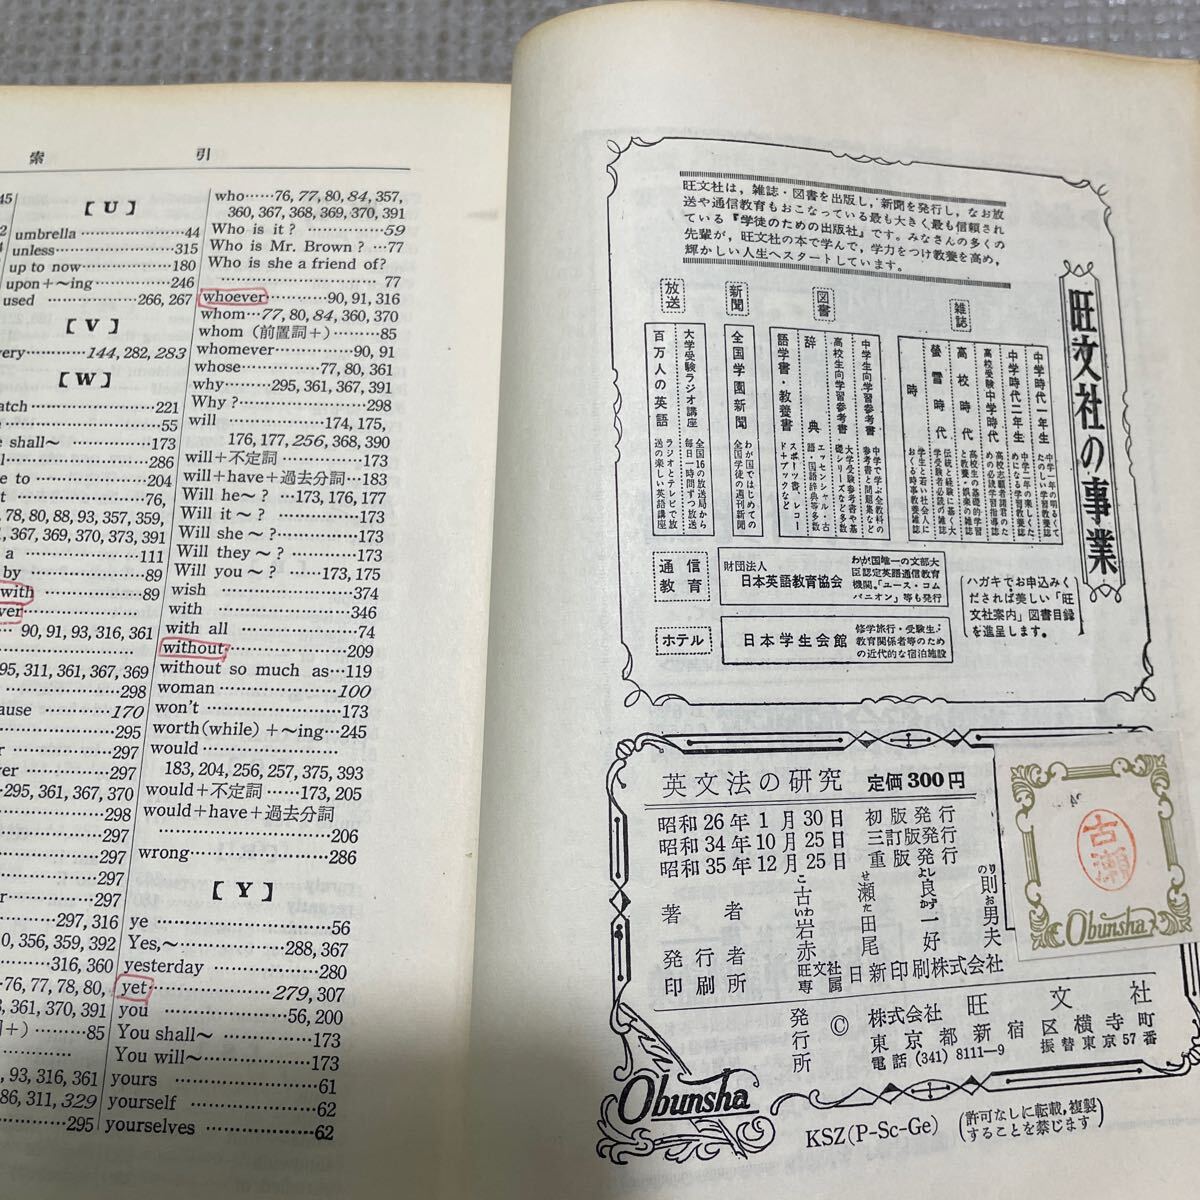 索　引
【U】
umbrella……44
unless……315
up to now……180
upon+～ing……246
used……266, 267
【V】
144, 282, 283
【W】
221
55
e shall～……173
286
204
76,
78, 80, 88, 93, 357, 359,
367, 369, 370, 373, 391
111
by……89
with……89
90, 91, 93, 316, 361
95, 311, 361, 367, 369
298
170
295
297
297
295, 361, 367, 370
298
297
297
297
297, 316
356, 359, 392
316, 360
76, 77, 78, 80,
361, 370, 391
85
93, 316, 361
86, 311, 329
295
who……76, 77, 80, 84, 357,
360, 367, 368, 369, 370, 391
Who is it?……59
Who is Mr. Brown?…77
Who is she a friend of?
……77
whoever……90, 91, 316
whom…77, 80, 84, 360, 370
whom (前置詞+)……85
whomever……90, 91
whose……77, 80, 361
why……295, 361, 367, 391
Why?……298
will……174, 175,
176, 177, 256, 368, 390
will+不定詞……173
will+have+過去分詞…183
Will he～?…173, 176, 177
Will it～?……173
Will she～?……173
Will they～?……173
Will you～?……173, 175
wish……374
with……346
with all……74
without……209
without so much as…119
woman……100
won't……173
worth(while)+～ing…245
would……
183, 204, 256, 257, 375, 393
would+不定詞……173, 205
would+have+過去分詞
……206
wrong……286
【Y】
ye……56
Yes,～……288, 367
yesterday……280
yet……279, 307
you……56, 200
You shall～……173
You will～……173
yours……61
yourself……62
yourselves……62
旺文社は，雑誌・図書を出版し，新聞を発行し，なお放
送や通信教育もおこなっている最も大きく最も信頼され
ている『学徒のための出版社』です。みなさんの多くの
先輩が，旺文社の本で学んで，学力をつけ教養を高め，
輝かしい人生へスタートしています。
旺文社の事業
雑誌
中学時代一年生　中学一年の明るくてたのしい学習教養誌
中学時代二年生　中学二年の楽しくためになる学習教養誌
高校受験中学時代　高校志願者諸君のための必読学習指導誌
高校時代　高校生の基礎的学習と教養・娯楽の雑誌
螢雪時代　伝統と経験に基く大学受験者必読の雑誌
時　学生と若い社会人におくる時事教養雑誌
図書
中学生向学習参考書　中学で学ぶ全教科の参考書と問題集など
高校生向学習参考書　大学受験参考書や基礎シリーズなど多数
辞典　エッセンシャル・古語・国語辞典等多数
語学書・教養書　スポーツ書、レコード+ブックなど
新聞
全国学園新聞　わが国ではじめての全国学徒の週刊新聞
放送
大学受験ラジオ講座　全国16の放送局から毎日一時間ずつ放送
百万人の英語　ラジオとテレビで放送の楽しい英語講座
通信教育
財団法人
日本英語教育協会
わが国唯一の文部大
臣認定英語通信教育
機関。「ユース・コム
パニオン」等も発行
ホテル
日本学生会館
修学旅行・受験生・
教育関係者等のため
の近代的な宿泊施設
ハガキでお申込みく
だされば美しい「旺
文社案内」図書目録
を進呈します。
英文法の研究　定価300円
昭和26年1月30日　初版発行
昭和34年10月25日　三訂版発行
昭和35年12月25日　重版発行
著者　古瀬良則
発行者　赤尾好夫
印刷所　旺文社専属　日新印刷株式会社
岩田一男
発行所　©　株式会社　旺文社
東京都新宿区横寺町
電話 (341) 8111―9　振替東京57番
Obunsha
KSZ(P-Sc-Ge)
(許可なしに転載,複製
することを禁じます)
古瀬
Obunsha